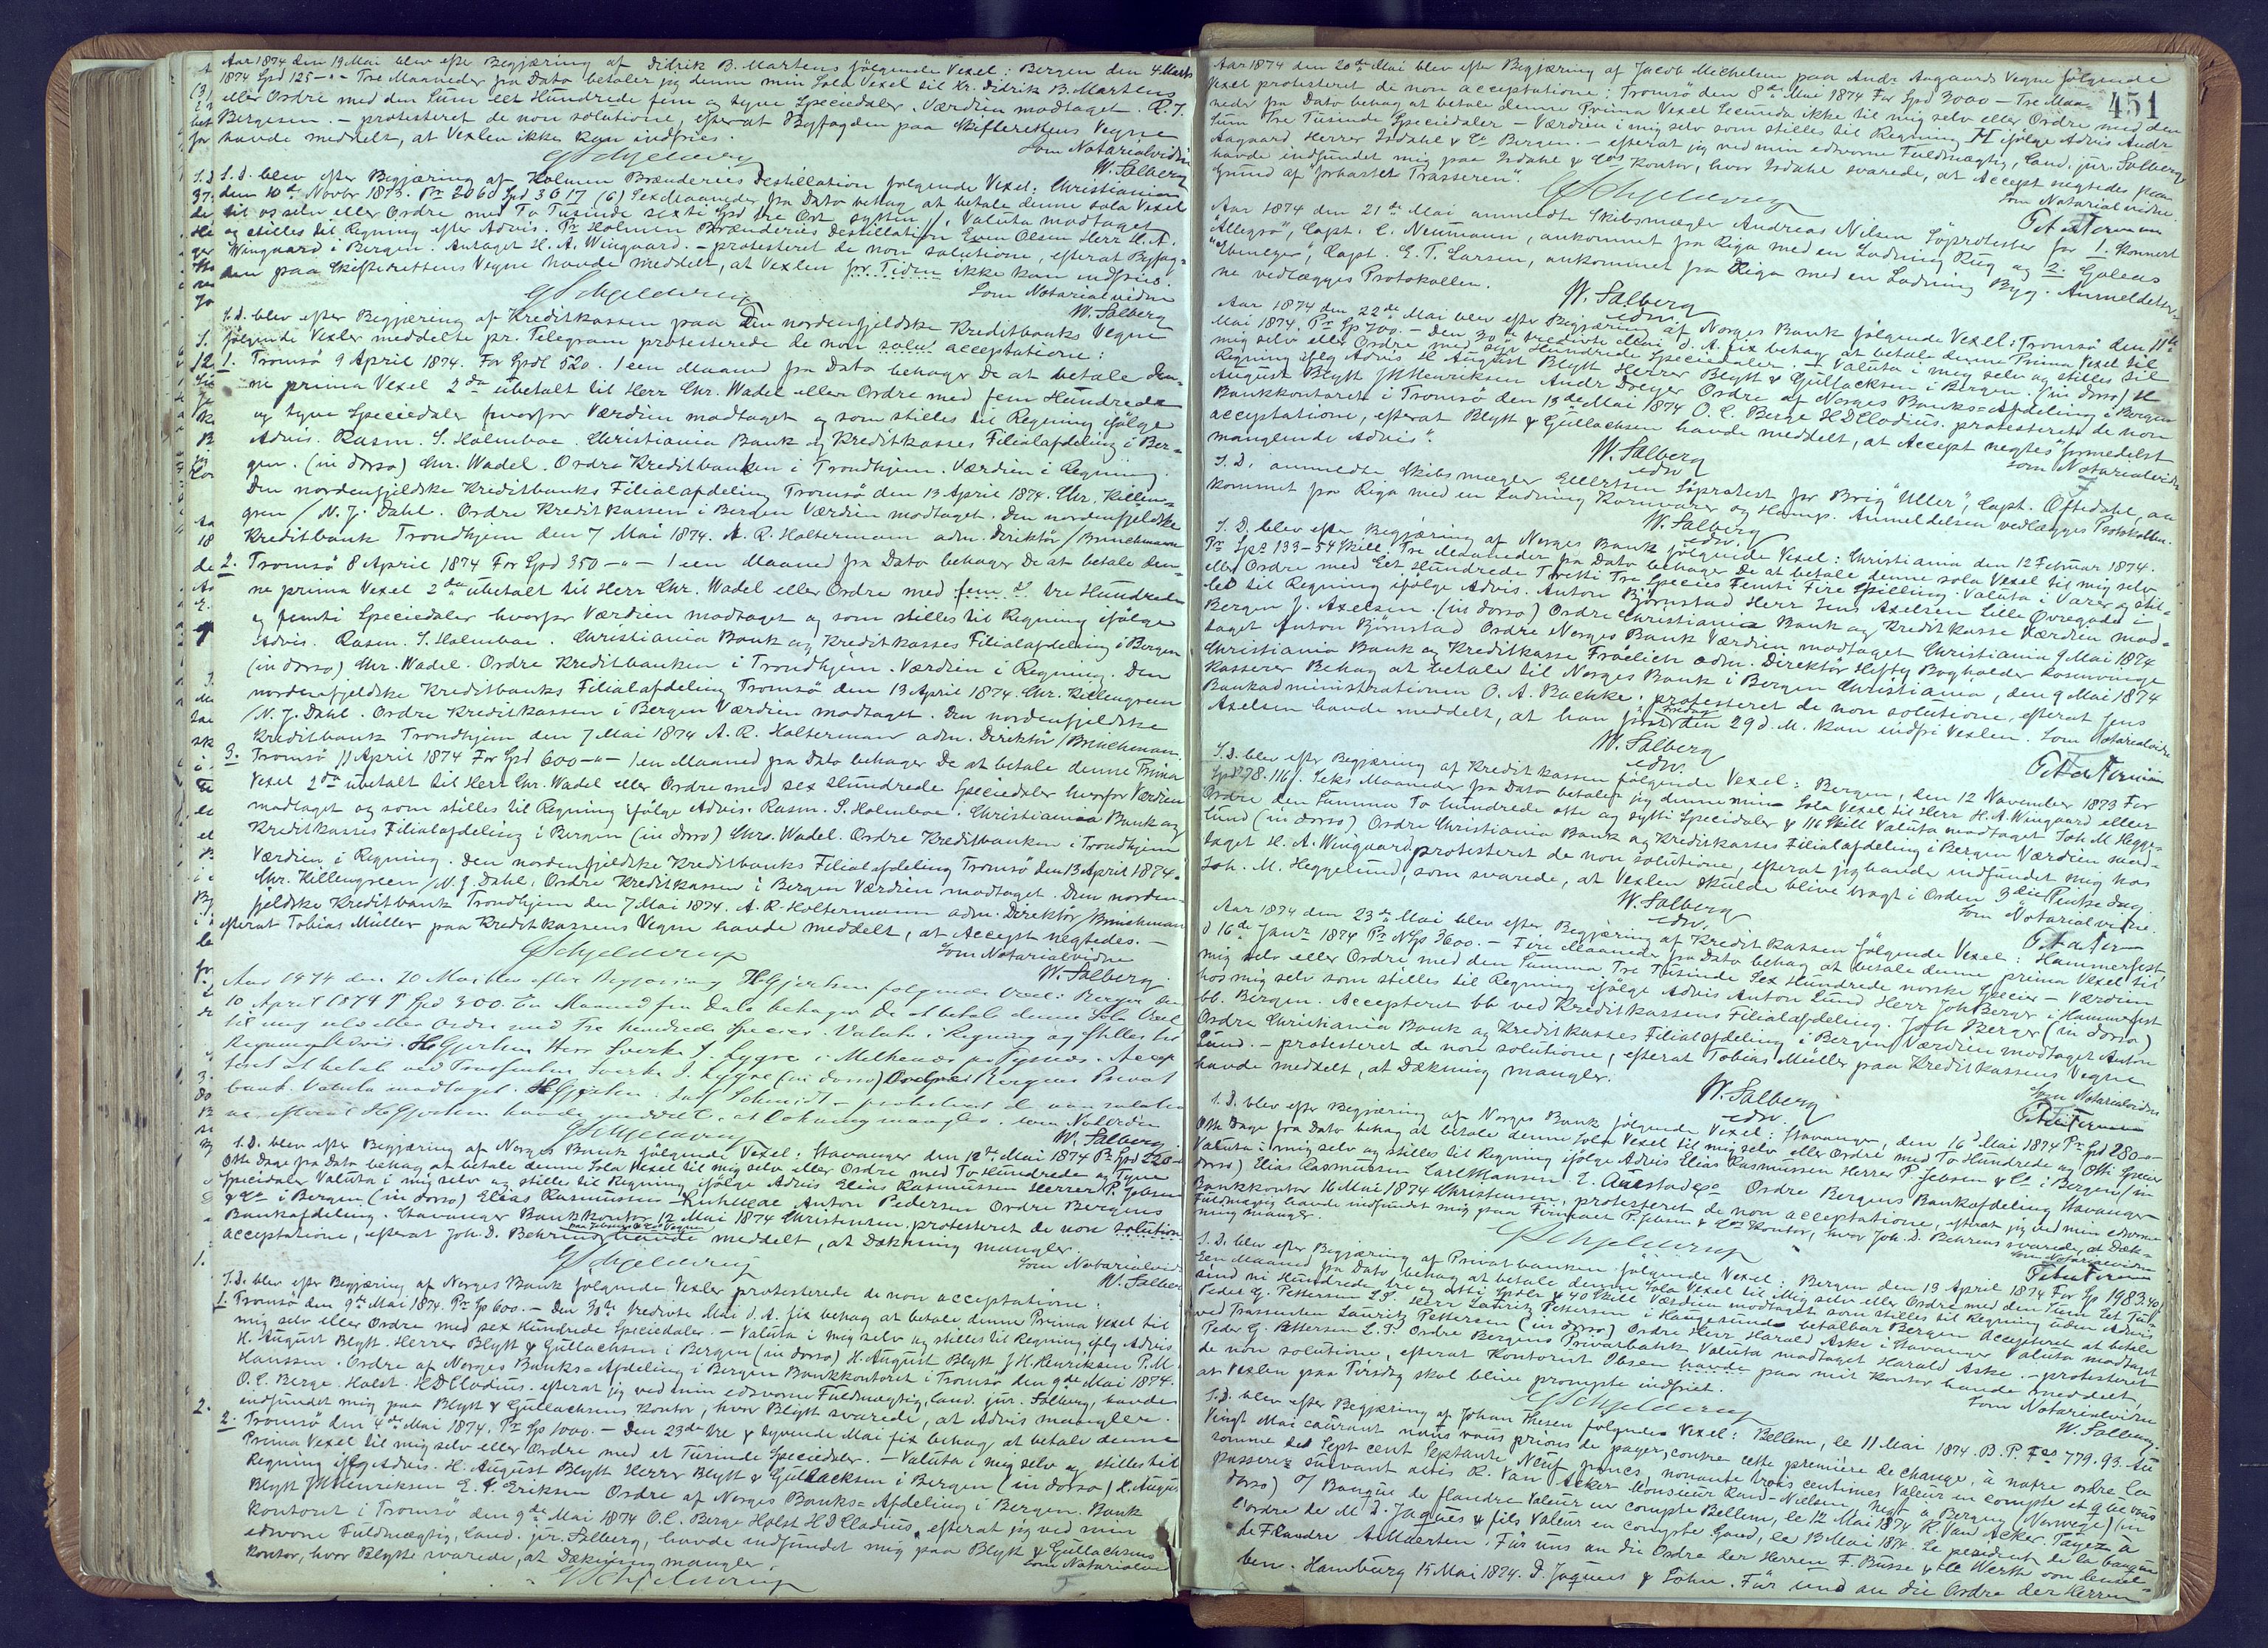 Aar 1874 den 19 Mai blev efter Begjæring af Didrik B. Martens følgende Vexel: Bergen den 4 Marts
1874 Spd 125 -"- Tre Maaneder fra Dato betaler jeg denne min Sola Vexel til Hr. Didrik B. Martens
eller Ordre med den Sum ett Hundrede fem og tyve Speciedaler. Værdien modtaget. R. J.
Bergesen. - protesteret de non solutione, efterat Byfogden paa Skifterettens Vegne
havde meddelt, at Vexlen ikke kan indfries.
Som Notarialvidne
GSchjelderup
W. Salberg
S.D. blev efter Begjæring af Holmen Brænderies Destillation følgende Vexel: Christiania
den 10de Novbr 1873. Pr 2060 Spd 3 Ø 17 (6) Sex Maaneder fra Dato behag at betale denne sola Vexel
til os selv eller Ordre med To Tusinde sexti Spd tre Ort sytten ſ. Valuta modtaget
og stilles til Regning efter Advis. Pr Holmen Brænderies Destillation Even Olsen Herr H. A.
Wingaard i Bergen. Antaget H. A. Wingaard. - protesteret de non solutione, efterat Byfog-
den paa Skifterettens Vegne havde meddelt, at Vexlen pr. Tiden ikke kan indfries.
Som Notarialvidne
GSchjelderup
W. Salberg
S.D. blev efter Begjæring af Kreditkassen paa Den nordenfjeldske Kreditbanks Vegne
følgende Vexler meddelte pr. Telegram protesterede de non solu acceptatione:
1. Tromsö 9 April 1874. For Spdl 520. 1 een Maaned fra Dato behager De at betale den-
ne prima Vexel 2da ubetalt til Herr Chr. Wadel eller Ordre med fem Hundrede
og tyve Speciedaler hvorfor Værdien modtaget og som stilles til Regning ifølge
Advis. Rasm. S. Holmboe. Christiania Bank og Kreditkasses Filialafdeling i Ber-
gen. (in dorso) Chr. Wadel. Ordre Kreditbanken i Trondhjem. Værdien i Regning.
Den nordenfjeldske Kreditbanks Filialafdeling Tromsö den 13 April 1874. Chr. Killen-
gren / N. J. Dahl. Ordre Kreditkassen i Bergen Værdien modtaget. Den nordenfjeldske
Kreditbank Trondhjem den 7 Mai 1874. A. R. Holtermann adm. Direktör / Brinchmann
2. Tromsö 8 April 1874 For Spd 350 -"- 1 een Maaned fra Dato behager De at betale den-
ne prima Vexel 2da ubetalt til Herr Chr. Wadel eller Ordre med fem H tre Hundrede
og femti Speciedaler hvorfor Værdien modtaget og som stilles til Regning ifølge
Advis. Rasm. S. Holmboe. Christiania Bank og Kreditkasses Filialafdeling i Bergen
(in dorso) Chr. Wadel. Ordre Kreditbanken i Trondhjem. Værdien i Regning. Den
nordenfjeldske Kreditbanks Filialafdeling Tromsö den 13 April 1874. Chr. Killengreen
/ N. J. Dahl. Ordre Kreditkassen i Bergen Værdien modtaget. Den nordenfjeldske
Kreditbank Trondhjem den 7 Mai 1874 A. R. Holtermann adm. Direktör / Brinchmann
3. Tromsö 11 April 1874 For Spd 600 -"- 1 een Maaned fra Dato behager De at betale denne Prima
Vexel 2da ubetalt til Herr Chr. Wadel eller Ordre med sex Hundrede Speciedaler hvorfor Værdien
modtaget og som stilles til Regning ifølge Advis. Rasm. S. Holmboe. Christiania Bank og
Kreditkasses Filialafdeling i Bergen (in dorso) Chr. Wadel. Ordre Kreditbanken i Trondhjem
Værdien i Regning. Den nordenfjeldske Kreditbanks Filialafdeling Tromsö den 13 April 1874.
Chr. Killengreen / N. J. Dahl. Ordre Kreditkassen i Bergen Værdien modtaget. Den norden-
fjeldske Kreditbank Trondhjem den 7 Mai 1874. A. R. Holtermann adm. Direktör / Brinchmann
efterat Tobias Müller paa Kreditkassens Vegne havde meddelt, at Accept negtedes. -
Som Notarialvidne
GSchjelderup
W. Salberg.
Aar 1874 den 20 Mai blev efter Begjæring H Gjertsen følgende Vexel: Bergen den
10 April 1874 Spd 300. En Maaned fra Dato behager De at betale denne Sola Vexel
til mig selv eller Ordre med Tre hundrede Specier. Valuta i Regning og stilles til
Regning Advis. H Gjertsen Herr Sverke J. Lygre i Melhenes pr Tysnes. Accep
teret at betale ved Trassenten Sverke J. Lygre (in dorso) Ordre Bergens Privat
bank. Valuta modtaget. H Gjertsen. Ludv Schmidt - protesteret de non solutio
ne efterat H Gjertsen havde meddelt, at Dækning mangler. som Notarvidne
GSchjelderup
W. Salberg.
S.D. blev efter Begjæring af Norges Bank følgende Vexel: Stavanger den 12te Mai 1874 Pr Spd 220-
Otte Dage fra Dato behag at betale denne Sola Vexel til mig selv eller Ordre med To Hundrede og Tyve
Speciedaler Valuta i mig selv og stilles til Regning ifølge Advis Elias Rasmussen Herrer P. Jebsen
& Co i Bergen (in dorso) Elias Rasmussen Anton Pedersen Ordre Bergens
Bankafdeling. Stavanger Bankkontor 12 Mai 1874 Christensen. protesteret de non solution
paa Jebsen & Cos Vegne
acceptatione, efterat Joh. D. Behrens havde meddelt, at Dækning mangler.
Som Notarialvid
GSchjelderup
W. Salber
S.D. blev efter Begjæring af Norges Bank følgende Vexler protesterede de non acceptatione:
1. Tromsö den 9de Mai 1874. Pr Sp 600. - Den 30te tredivte Mai d. A. fix behag at betale denne Prima Vexel til
mig selv eller Ordre med sex Hundrede Speciedaler. - Valuta i mig selv og stilles til Regning iflg Advis
H. August Blytt. Herrer Blytt & Gullachsen i Bergen (in dorso) H. August Blytt J H. Henriksen P. M.
Hanssen. Ordre af Norges Banks Afdeling i Bergen Bankkontoret i Tromsö den 9de Mai 1874.
O. C. Berge. Holst. H D Clodius. efterat jeg ved min edsvorne Fuldmægtig, Cand. jur. Salberg, havde
indfundet mig paa Blytt & Gullachsens Kontor, hvor Blytt svarede, at Advis mangler.
2. Tromsö den 4de Mai 1874. Pr Sp 1000. - Den 23de tre & tyvende Mai fix behag at betale denne
Prima Vexel til mig selv eller Ordre med et Tusinde Speciedaler. - Valuta i mig selv og stilles til
Regning iflg Advis. H. August Blytt Herrer Blytt & Gullachsen i Bergen (in dorso) H. August
Blytt J H Henriksen E. A. Eriksen Ordre af Norges Banks Afdeling i Bergen. Bank
kontoret i Tromsö den 9de Mai 1874 O. C. Berge Holst H D Clodius, efterat jeg ved min
edsvorne Fuldmægtig, Cand. jur. Salberg, havde indfundet mig paa Blytt & Gullachsens
Kontor, hvor Blytt svarede, at Dækning mangler.
Som Notarialvi
GSchjelderup
451
Aar 1874 den 20de Mai blev efter Begjæring af Jacob Michelsen paa Andr. Aagaards Vegne følgende
Vexel protesteret de non acceptatione: Tromsö den 8de Mai 1874 For Spd 3000 - Tre Maa-
neder fra Dato behag at betale denne Prima Vexel Secunda ikke til mig selv eller Ordre med den
Sum Tre Tusinde Speciedaler - Værdien i mig selv som stilles til Regning ifölge Advis Andr
Aagaard Herrer Isdahl & Co Bergen. - efterat jeg ved min edsvorne Fuldmægtig, Cand. jur. Salberg,
havde indfundet mig paa Isdahl & Cos Kontor, hvor Isdahl svarede, at Accept negtedes paa
Grund af "forhastet Trasseren".
Som Notarialvidne.
GSchjelderup
Aar 1874 den 21de Mai anmeldte Skibsmægler Andreas Nilsen Söprotester for 1. Skonnert
"Allegro", Capt. C. Neumann, ankommet fra Riga med en Ladning Rug og 2. Galeas
"Ebenezer", Capt. E. T. Larsen, ankommet fra Riga med en Ladning Byg. Anmeldelser-
ne vedlægges Protokollen.
W. Salberg
edsv.
Aar 1874 den 22de Mai blev efter Begjæring af Norges Bank følgende Vexel: Tromsö den 11te
Mai 1874. Pr Sp 700. - Den 30te tredivte Mai d. A. fix behag at betale denne Prima Vexel til
mig selv eller Ordre med syv Hundrede Speciedaler. - Valuta i mig selv og stilles til
Regning iflg Advis H August Blytt Herrer Blytt & Gullachsen i Bergen. (in dorso) H
August Blytt J H Henriksen Andr Dreyer Ordre af Norges Banks Afdeling i Bergen
Bankkontoret i Tromsö den 13de Mai 1874 O. C. Berge H D Clodius. protesteret de non
acceptatione, efterat Blytt & Gullachsen havde meddelt, at Accept negtes "formedelst
manglende Advis".
Som Notarialvidn
W. Salberg
edsv
S.D. anmeldte Skibsmægler Ellertsen Söprotest for Brig "Uller", Capt. Oftedahl, an
kommet fra Riga med en Ladning Kornvarer og Hamp. Anmeldelsen vedlægges Protokollen.
W. Salberg
edsv.
S.D. blev efter Begjæring af Norges Bank følgende Vexel: Christiania den 12 Februar 1874.
Pr Spd 133-54 Skill. Tre Maaneder fra Dato behager De at betale denne sola Vexel til mig selv
eller Ordre med Eet Hundrede Tretti Tre Species Femti Fire Skilling. Valuta i Varer og stil-
les til Regning ifølge Advis. Anton Björnstad Herr Jens Axelsen Lille Øvregade i
Bergen J. Axelsen. (in dorso) Ordre Christiania Bank og Kreditkasse Værdien mod-
taget Anton Björnstad Ordre Norges Bank Værdien modtaget Christiania 9 Mai 1874
Christiania Bank og Kreditkasse Frölich adm. Direktör Hefty Bogholder Rosenvinge
Kasserer Behag at betale til Norges Bank i Bergen Christiania, den 9 Mai 1874
Bankadministrationen O. A. Bachke. protesteret de non solutione, efterat Jens
Fredag
Axelsen havde meddelt, at han först den 29 d. M. kan indfri Vexlen. Som Notarialvidne
W. Salberg
edsv.
S.D. blev efter Begjæring af Kreditkassen følgende Vexel: Bergen, den 12 November 1873 For
Spd 278.116ſ. Seks Maaneder fra Dato betaler jeg denne min Sola Vexel til Herr H. A. Wingaard eller
Ordre den Summa To hundrede otte og sytti Speciedaler & 116 Skill Valuta modtaget Joh. M. Hegge-
lund (in dorso) Ordre Christiania Bank og Kreditkasses Filialafdeling i Bergen Værdien mod-
taget H. A. Wingaard protesteret de non solutione, efterat jeg havde indfundet mig hos
Joh. M. Heggelund, som svarede, at Vexlen skulde blive bragt i Orden 3die Pintsedag.
Som Notarialvidne.
W. Salberg
edsv.
Aar 1874 den 23de Mai blev efter Begjæring af Kreditkassen følgende Vexel: Hammerfest,
d 16de Janr 1874 Pr NSp 3600. - Fire Maaneder fra Dato behag at betale denne prima Vexel til
mig selv eller Ordre med den Summa Tre Tusinde Sex Hundrede norske Specier - Værdien
hos mig selv som stilles til Regning ifølge Advis Anton Lund Herr Joh Berger i Hammerfest
bt. Bergen. Accepteret bt ved Kreditkassens Filialafdeling. Joh Berger (in dorso)
Ordre Christiania Bank og Kreditkasses Filialafdeling i Bergen Værdien modtaget Anton
Lund. - protesteret de non solutione, efterat Tobias Müller paa Kreditkassens Vegne
havde meddelt, at Dækning mangler.
Som Notarialvidne
W. Salberg
edsv.
S.D. blev efter Begjæring af Norges Bank følgende Vexel: Stavanger, den 16de Mai 1874 Pr Spd 280 -"-
Otte Dage fra Dato behag at betale denne Sola Vexel til mig selv eller Ordre med To Hundrede og Otti Specier
Valuta i mig selv og stilles til Regning ifølge Advis Elias Rasmussen Herrer P. Jebsen & Co. i Bergen (in
dorso) Elias Rasmussen Carl Hansen Ordre Bergens Bankafdeling Stavanger
Bankkontor 16 Mai 1874 Christensen. protesteret de non acceptatione, efterat jeg ved min edsvorne
Fuldmægtig havde indfundet mig paa Firmaet P. Jebsen & Cos Kontor, hvor Joh. D. Behrens svarede, at Dæk-
ning mangler.
Som Notarialvidne
GSchjelderup
S.D. blev efter Begjæring af Privatbanken følgende Vexel: Bergen den 13 April 1874 For Sp 1983.40ſ
Een Maaned fra Dato behag at betale denne Sola Vexel til Mig selv eller Ordre med den Sum Et Tu-
sind ni Hundrede tre og otti Spdlr & 40 Skill Værdien modtaget som stilles til Regning uden Advis
Peder G. Pettersen L.S. Herr Lauritz Pettersen i Haugesund betalbar Bergen Accepteret at betale
ved Trassenten Lauritz Pettersen (in dorso) Ordre Herr Harald Aske i Stavanger Valuta modtaget
Peder G. Pettersen L.S. Ordre Bergens Privatbank Valuta modtaget Harald Aske. - protesteret
de non solutione, efterat Kontorist Olsen havde paa mit Kontor havde meddelt,
at Vexlen paa Tirsdag skal blive prompte indfriet.
Som Notarialvidne
GSchjelderup
W. Salberg.
S.D. blev efter Begjæring af Johan Thesen følgende Vexel: Bellem, le 11 Mai 1874. B. P. Fcs 779.93. Au
Vingt Mai courant nous vous prions de payer, contre cette première de change, à notre ordre la
somme de Sept cent Septante Neuf francs, nonante trois centimes Valeur en compte et que vous
passerez suivant avis R. Van Acker Monsieur Rand-Nielsen, Negt à Bergen (Norwège) (in
dorso) o/ Banque de Flandre Valeur en compte Bellem, le 12 Mai 1874 R. Van Acker. Payez à
l'ordre de M D. Jaques & fils Valeur en compte Gand, le 13 Mai 1874. Le président de la banque
de Flandre A. Maerten. Für uns an die Ordre der Herren F. Busse & Co Werth von densel-
ben. Hamburg 15 Mai 1874. D. Jaques & Sohn. Für und an die Ordre der Herren